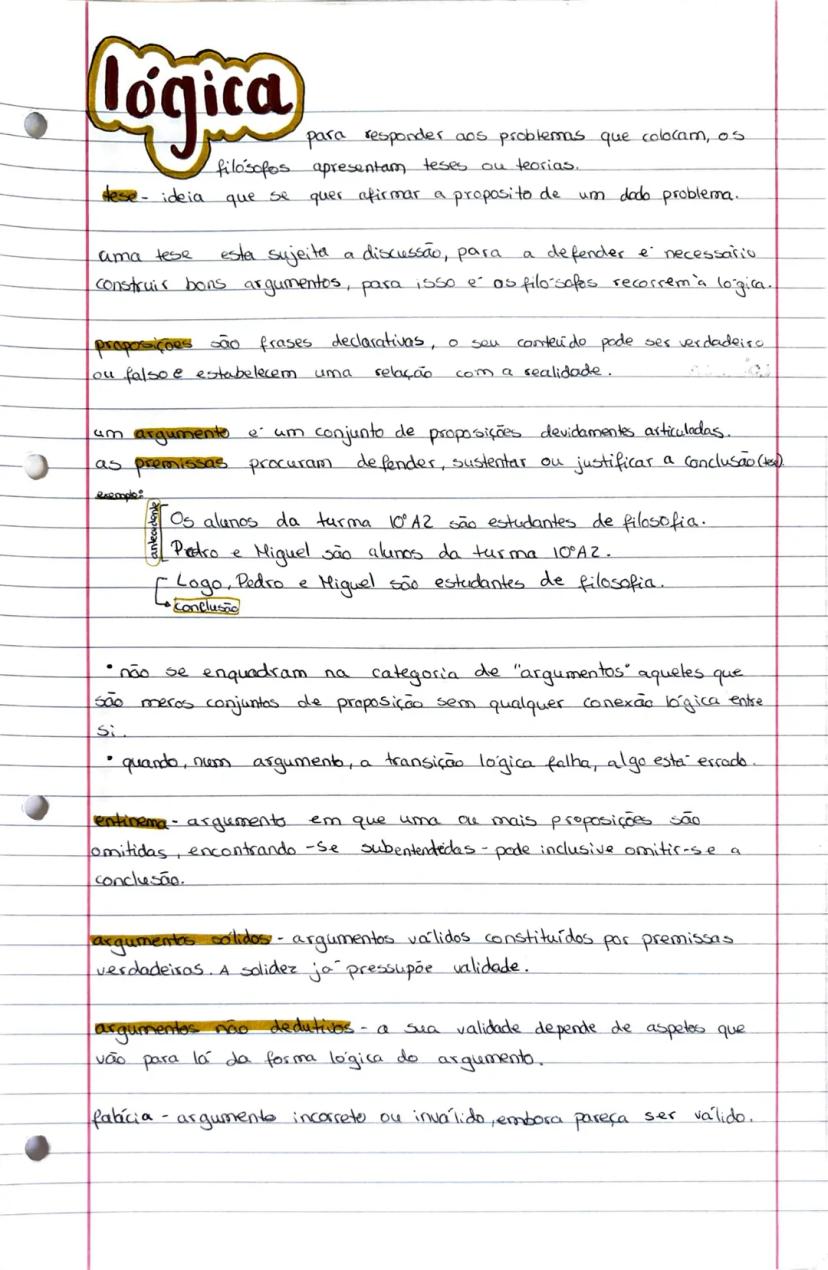 lógica
para responder aos problemas que colocam, os
filósofos apresentam teses ou teorias.
tese - ideia que se quer afirmar a proposito de um dado problema.
uma tese esta sujeita a discussão, para a defender é necessário
construir bons argumentos, para isso é os filósofos recorrem à lógica.
proposições são frases declarativas, o seu conteúdo pode ser verdadeiro
ou falso e estabelecem uma relação com a realidade.
um argumento é um conjunto de proposições devidamentes articuladas.
as premissas procuram defender, sustentar ou justificar a conclusão (tese).
exemplo:
antecedente
Os alunos da turma 10ºA2 são estudantes de filosofia.
Pedro e Miguel são alunos da turma 10ºA2.
Logo, Pedro e Miguel são estudantes de filosofia.
conclusão
• não se enquadram na categoria de "argumentos" aqueles que
são meros conjuntos de proposição sem qualquer conexão lógica entre
si.
• quando, num argumento, a transição lógica falha, algo está errado.
entinema - argumento em que uma ou mais proposições são
omitidas, encontrando-se subentendidas - pode inclusive omitir-se a
conclusão.
argumentos sólidos - argumentos válidos constituídos por premissas
verdadeiras. A solidez já pressupõe validade.
argumentos não dedutivos - a sua validade depende de aspetos que
vão para lá da forma lógica do argumento.
falácia - argumento incorreto ou inválido, embora pareça ser válido.